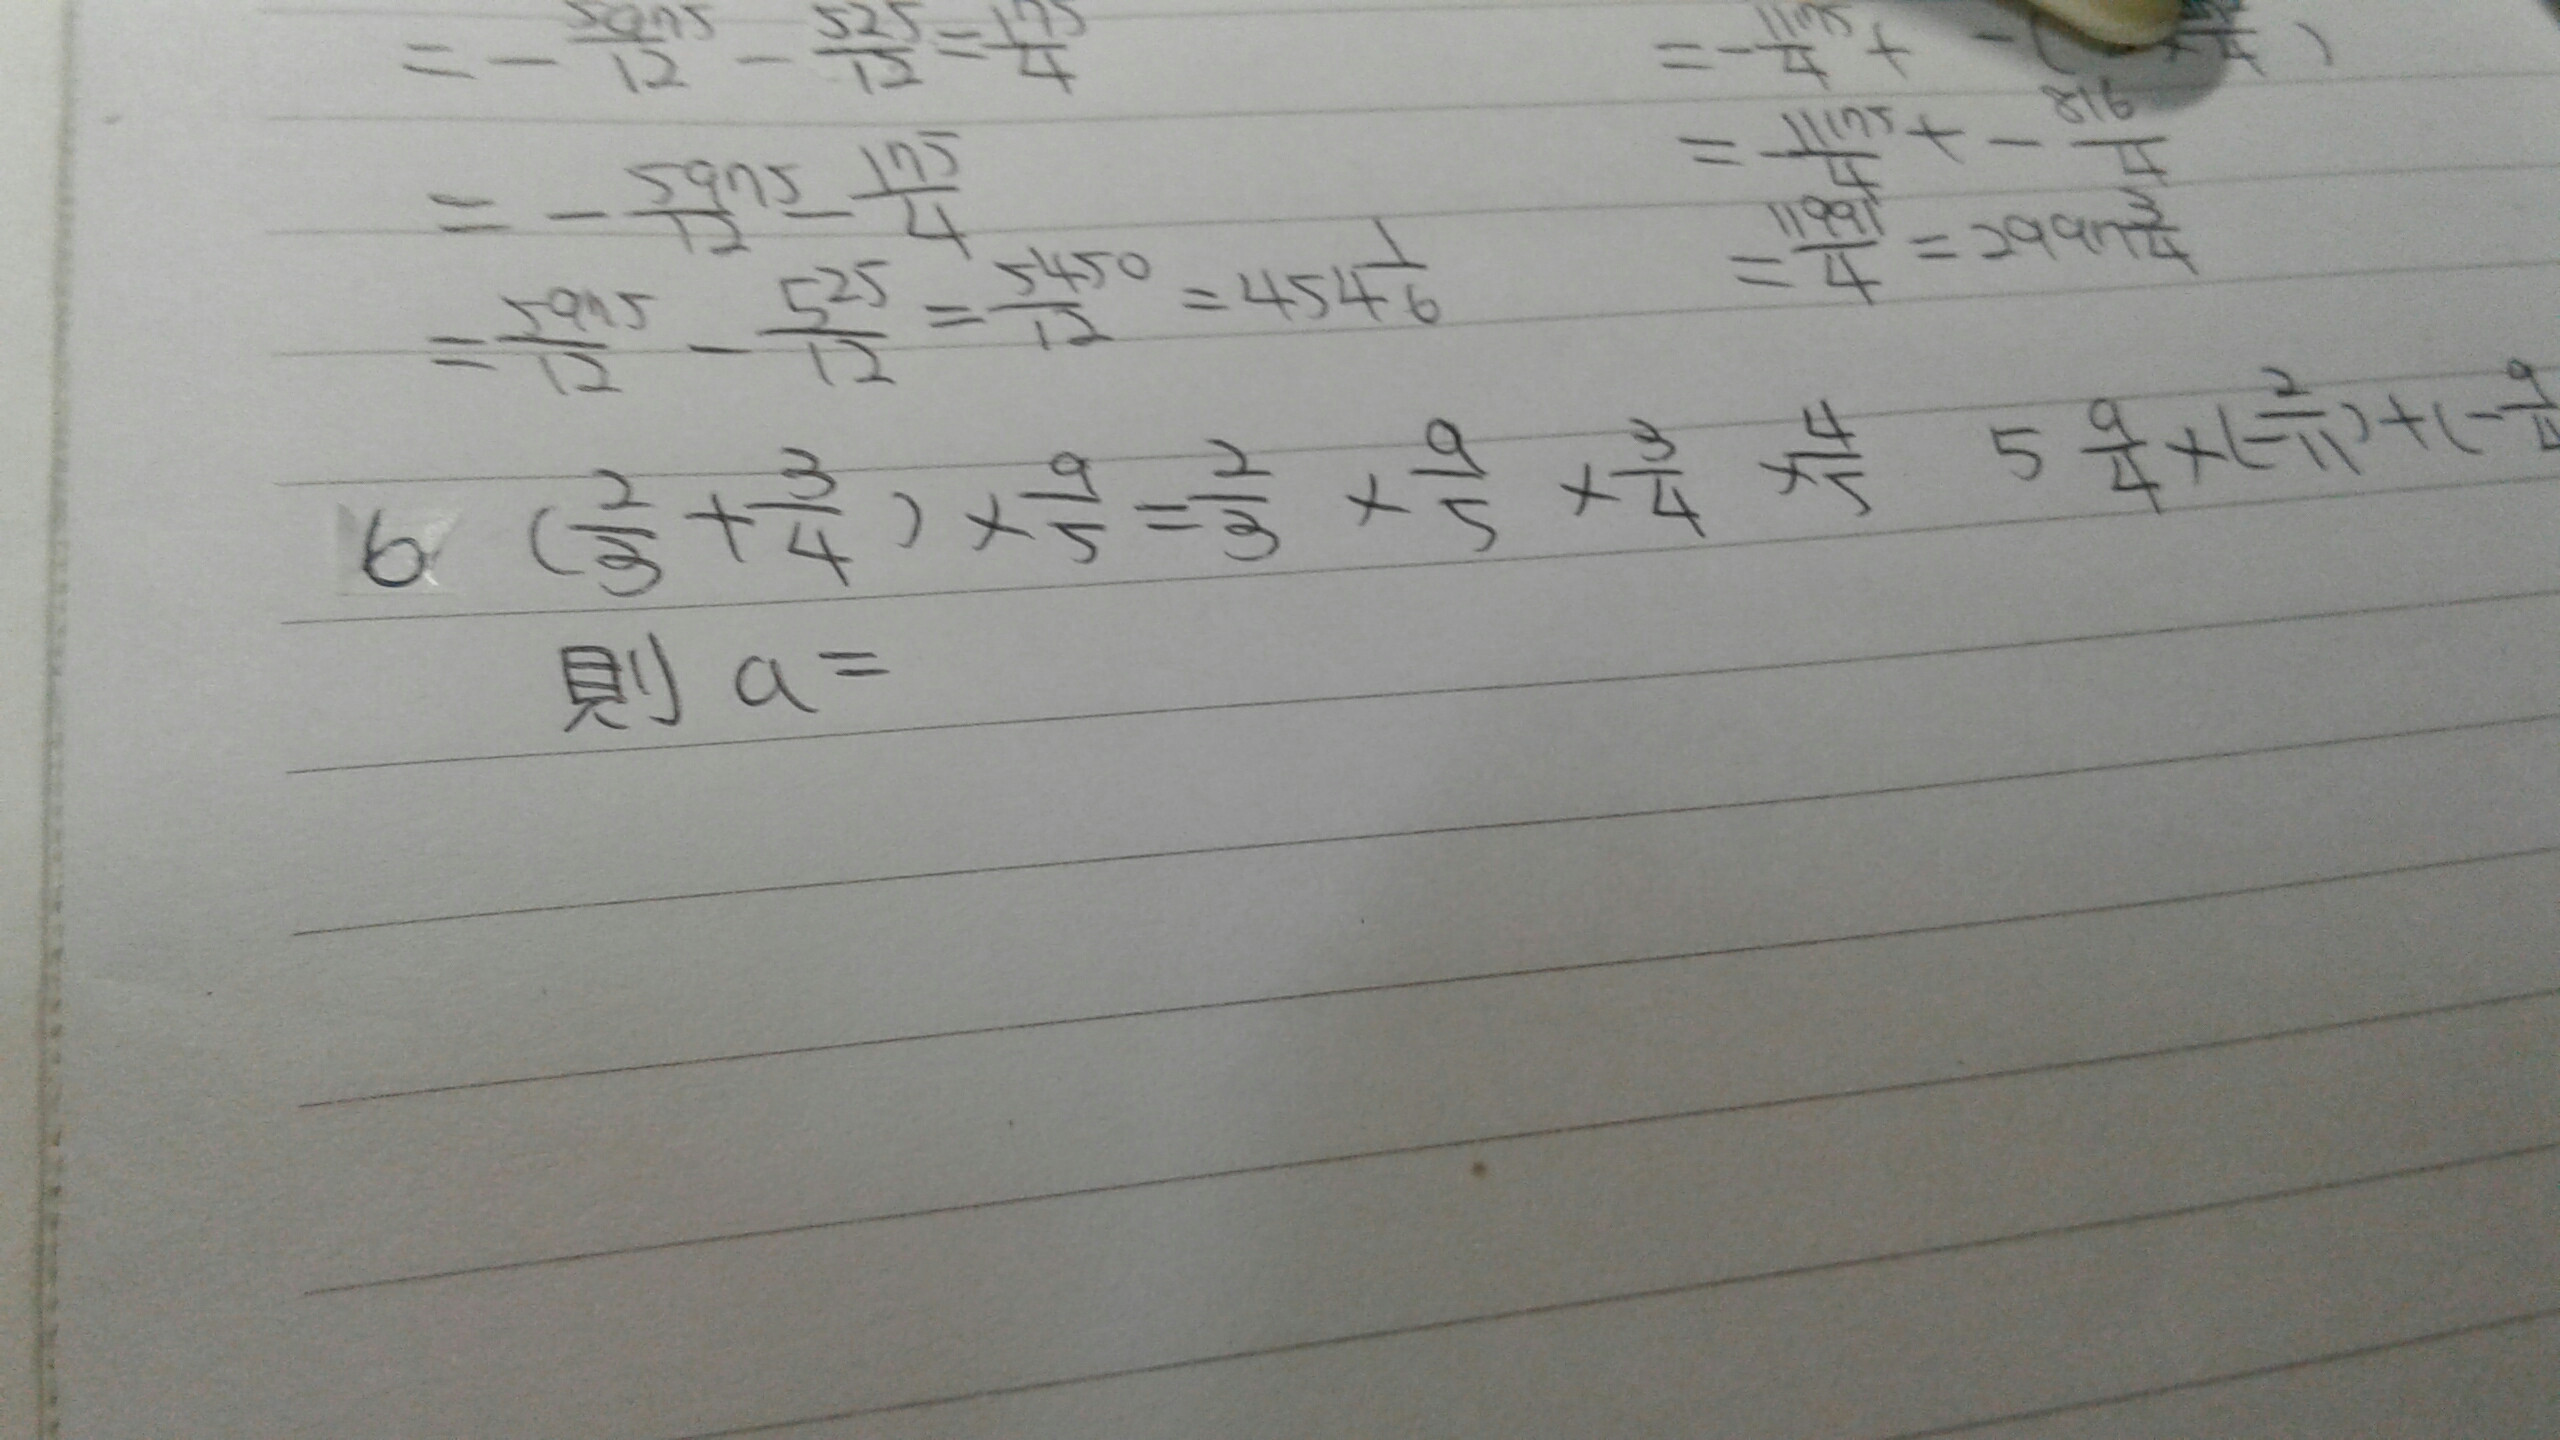 = - 5975/12 - 525/12 = 175/4
= - 5975/12 - 175/4
= 5975/12 - 525/12 = 5450/12 = 454 1/6
= - 1175/4 + - (
= 11175/4 + - 816/4
= 11991/4 = 2997 3/4
6 (2/3 + 3/4) × 9/5 = 2/3 × 9/5 × 3/4 × 4/5
則 a =
5 9/4 × (-2/11) + (- 9/4